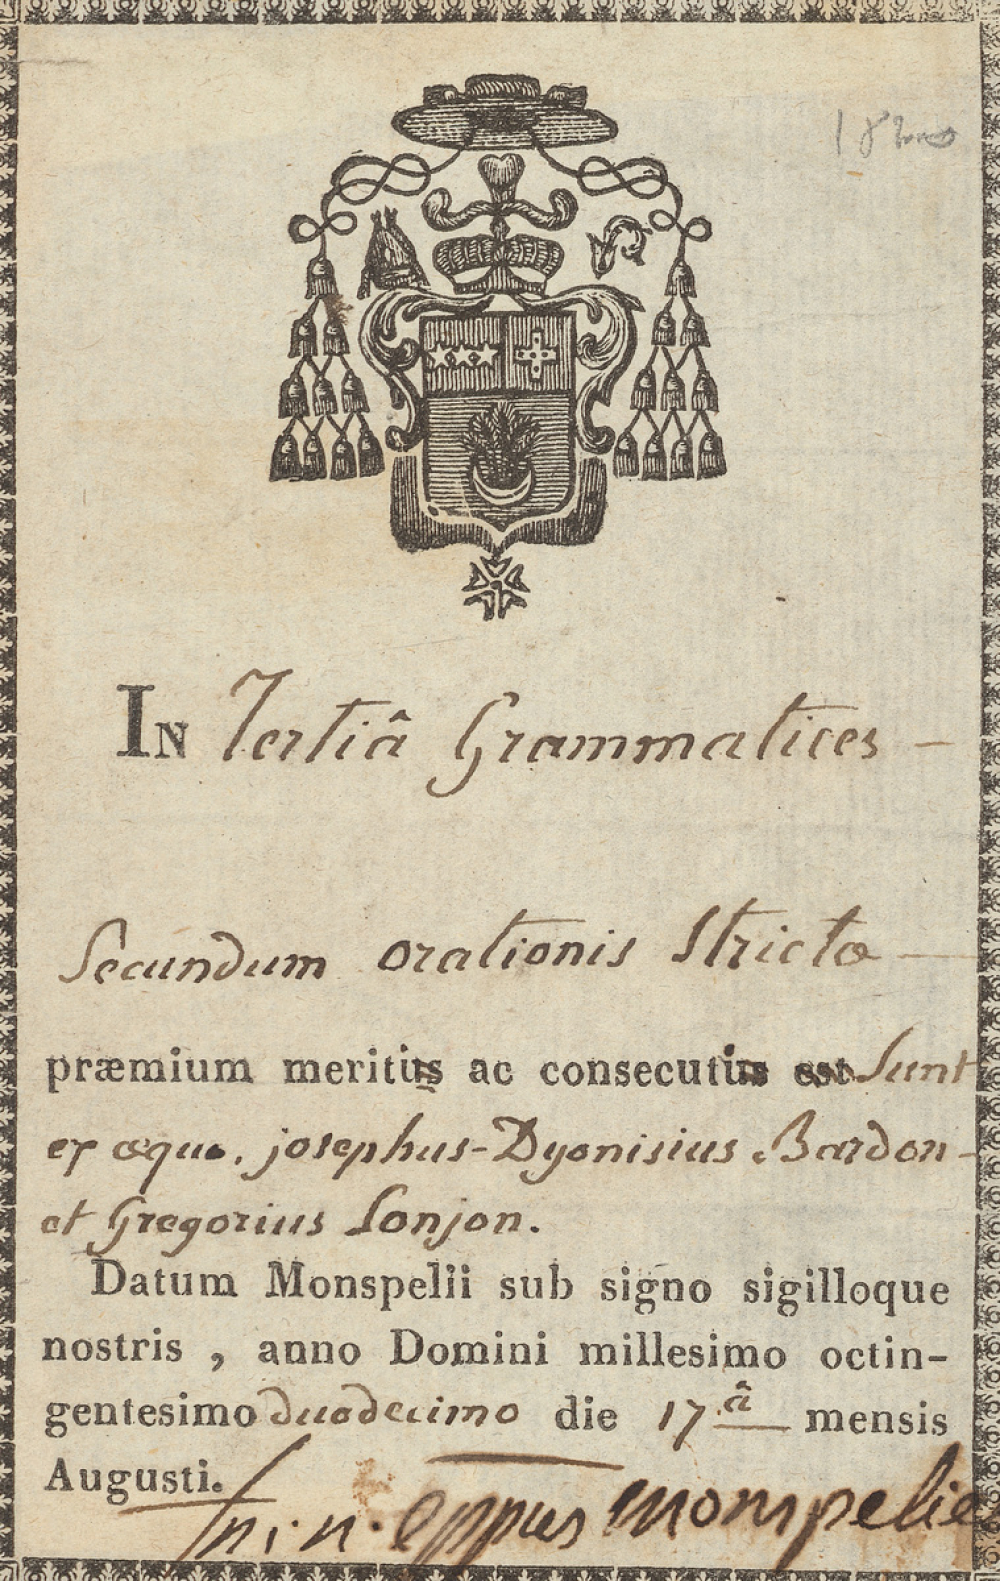 In Tertiâ Grammatices -
Secundum orationis Strictæ
præmium meritus ac consecutus est Sunt
ex æquo. josephus-Dyonisius Bardon -
et Gregorius Lonjon.
Datum Monspelii sub signo sigilloque
nostris , anno Domini millesimo octin-
gentesimo duodecimo die 17â mensis
Augusti.
m. n. eppus monspelie